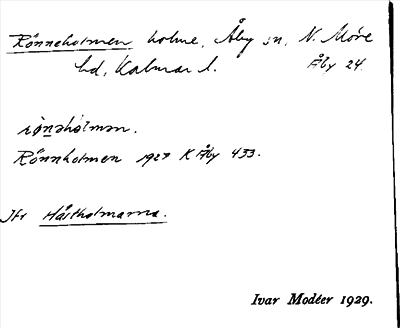 Rönneholmen holme, Åby sn, N. Möre
hd, Kalmar l. Åby 24.
rönəhòlmən.
Rönnholmen 1927 K Åby 433.
Jfr Håstholmarna.
Ivar Modéer 1929.